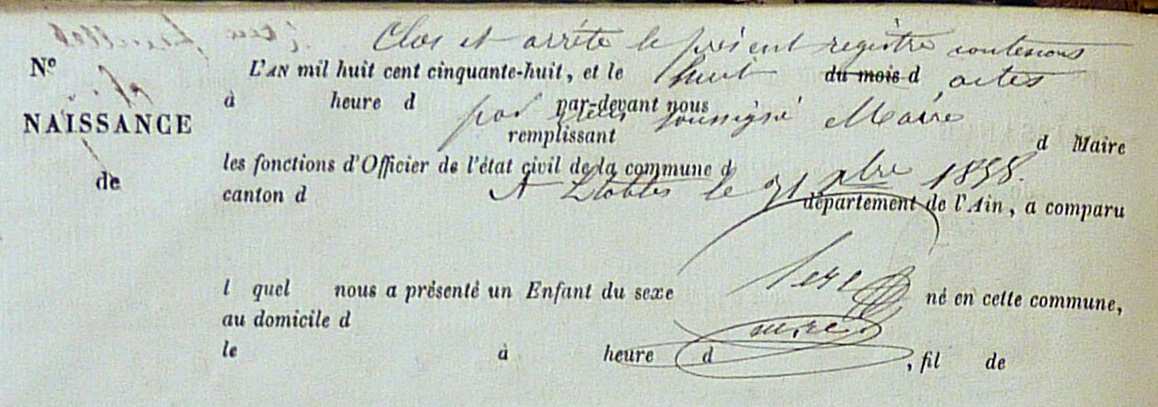 Clos et arrêté le présent registre contenans
N°
L'AN mil huit cent cinquante-huit, et le huit du mois d actes
à heure d par-devant nous
NAISSANCE
par nous soussigné Maire
remplissant d Maire
les fonctions d'Officier de l'état civil de la commune d
de
A le 31 xbre 1858.
canton d département de l'Ain, a comparu
l quel nous a présenté un Enfant du sexe né en cette commune,
au domicile d
maire
le à heure d , fil de